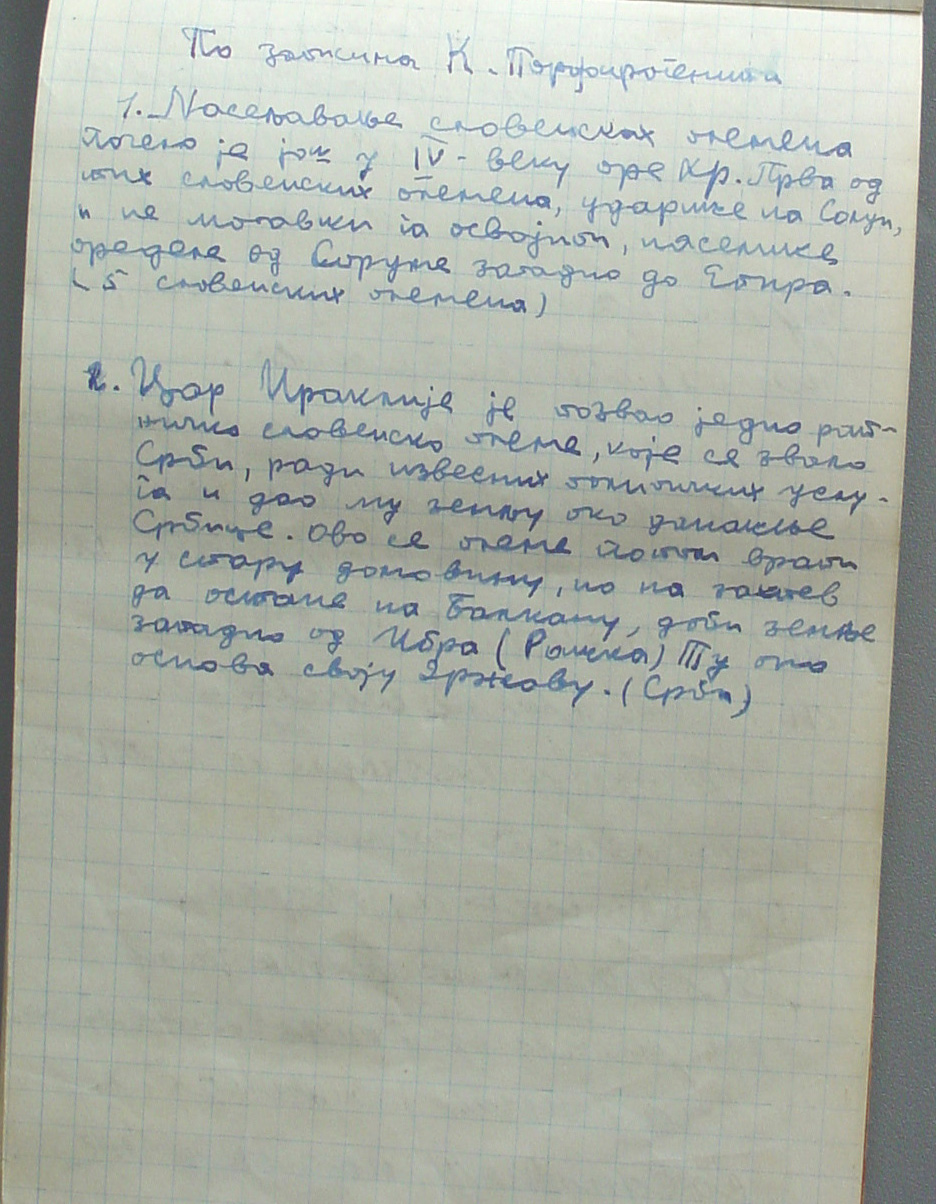 По записима К. Порфирогенита
1. Насељавање словенских племена
почело је још у IV - веку пре Хр. Прва од
тих словенских племена, ударише на Солун,
и не могавши га освојити, населише
пределе од Струме западно до Епира.
(5 словенских племена)
2. Цар Ираклије је позвао једно рат-
ничко словенско племе, које се звало
Срби, ради извесних политичких услу-
га и дао му земљу око данашње
Србице. Ово се племе потом врати
у стару домовину, но на захтев
да остане на Балкану, доби земље
западно од Ибра (Рашка) Ту оно
основа своју државу. (Срби)